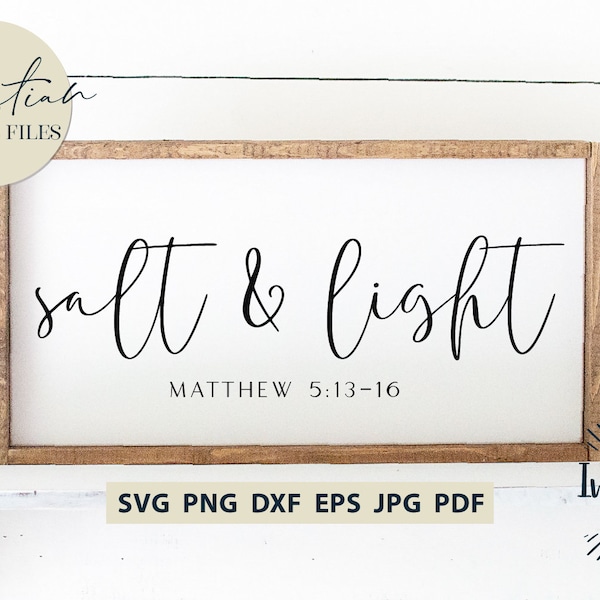 FILES
salt & light
MATTHEW 5:13-16
SVG PNG DXF EPS JPG PDF